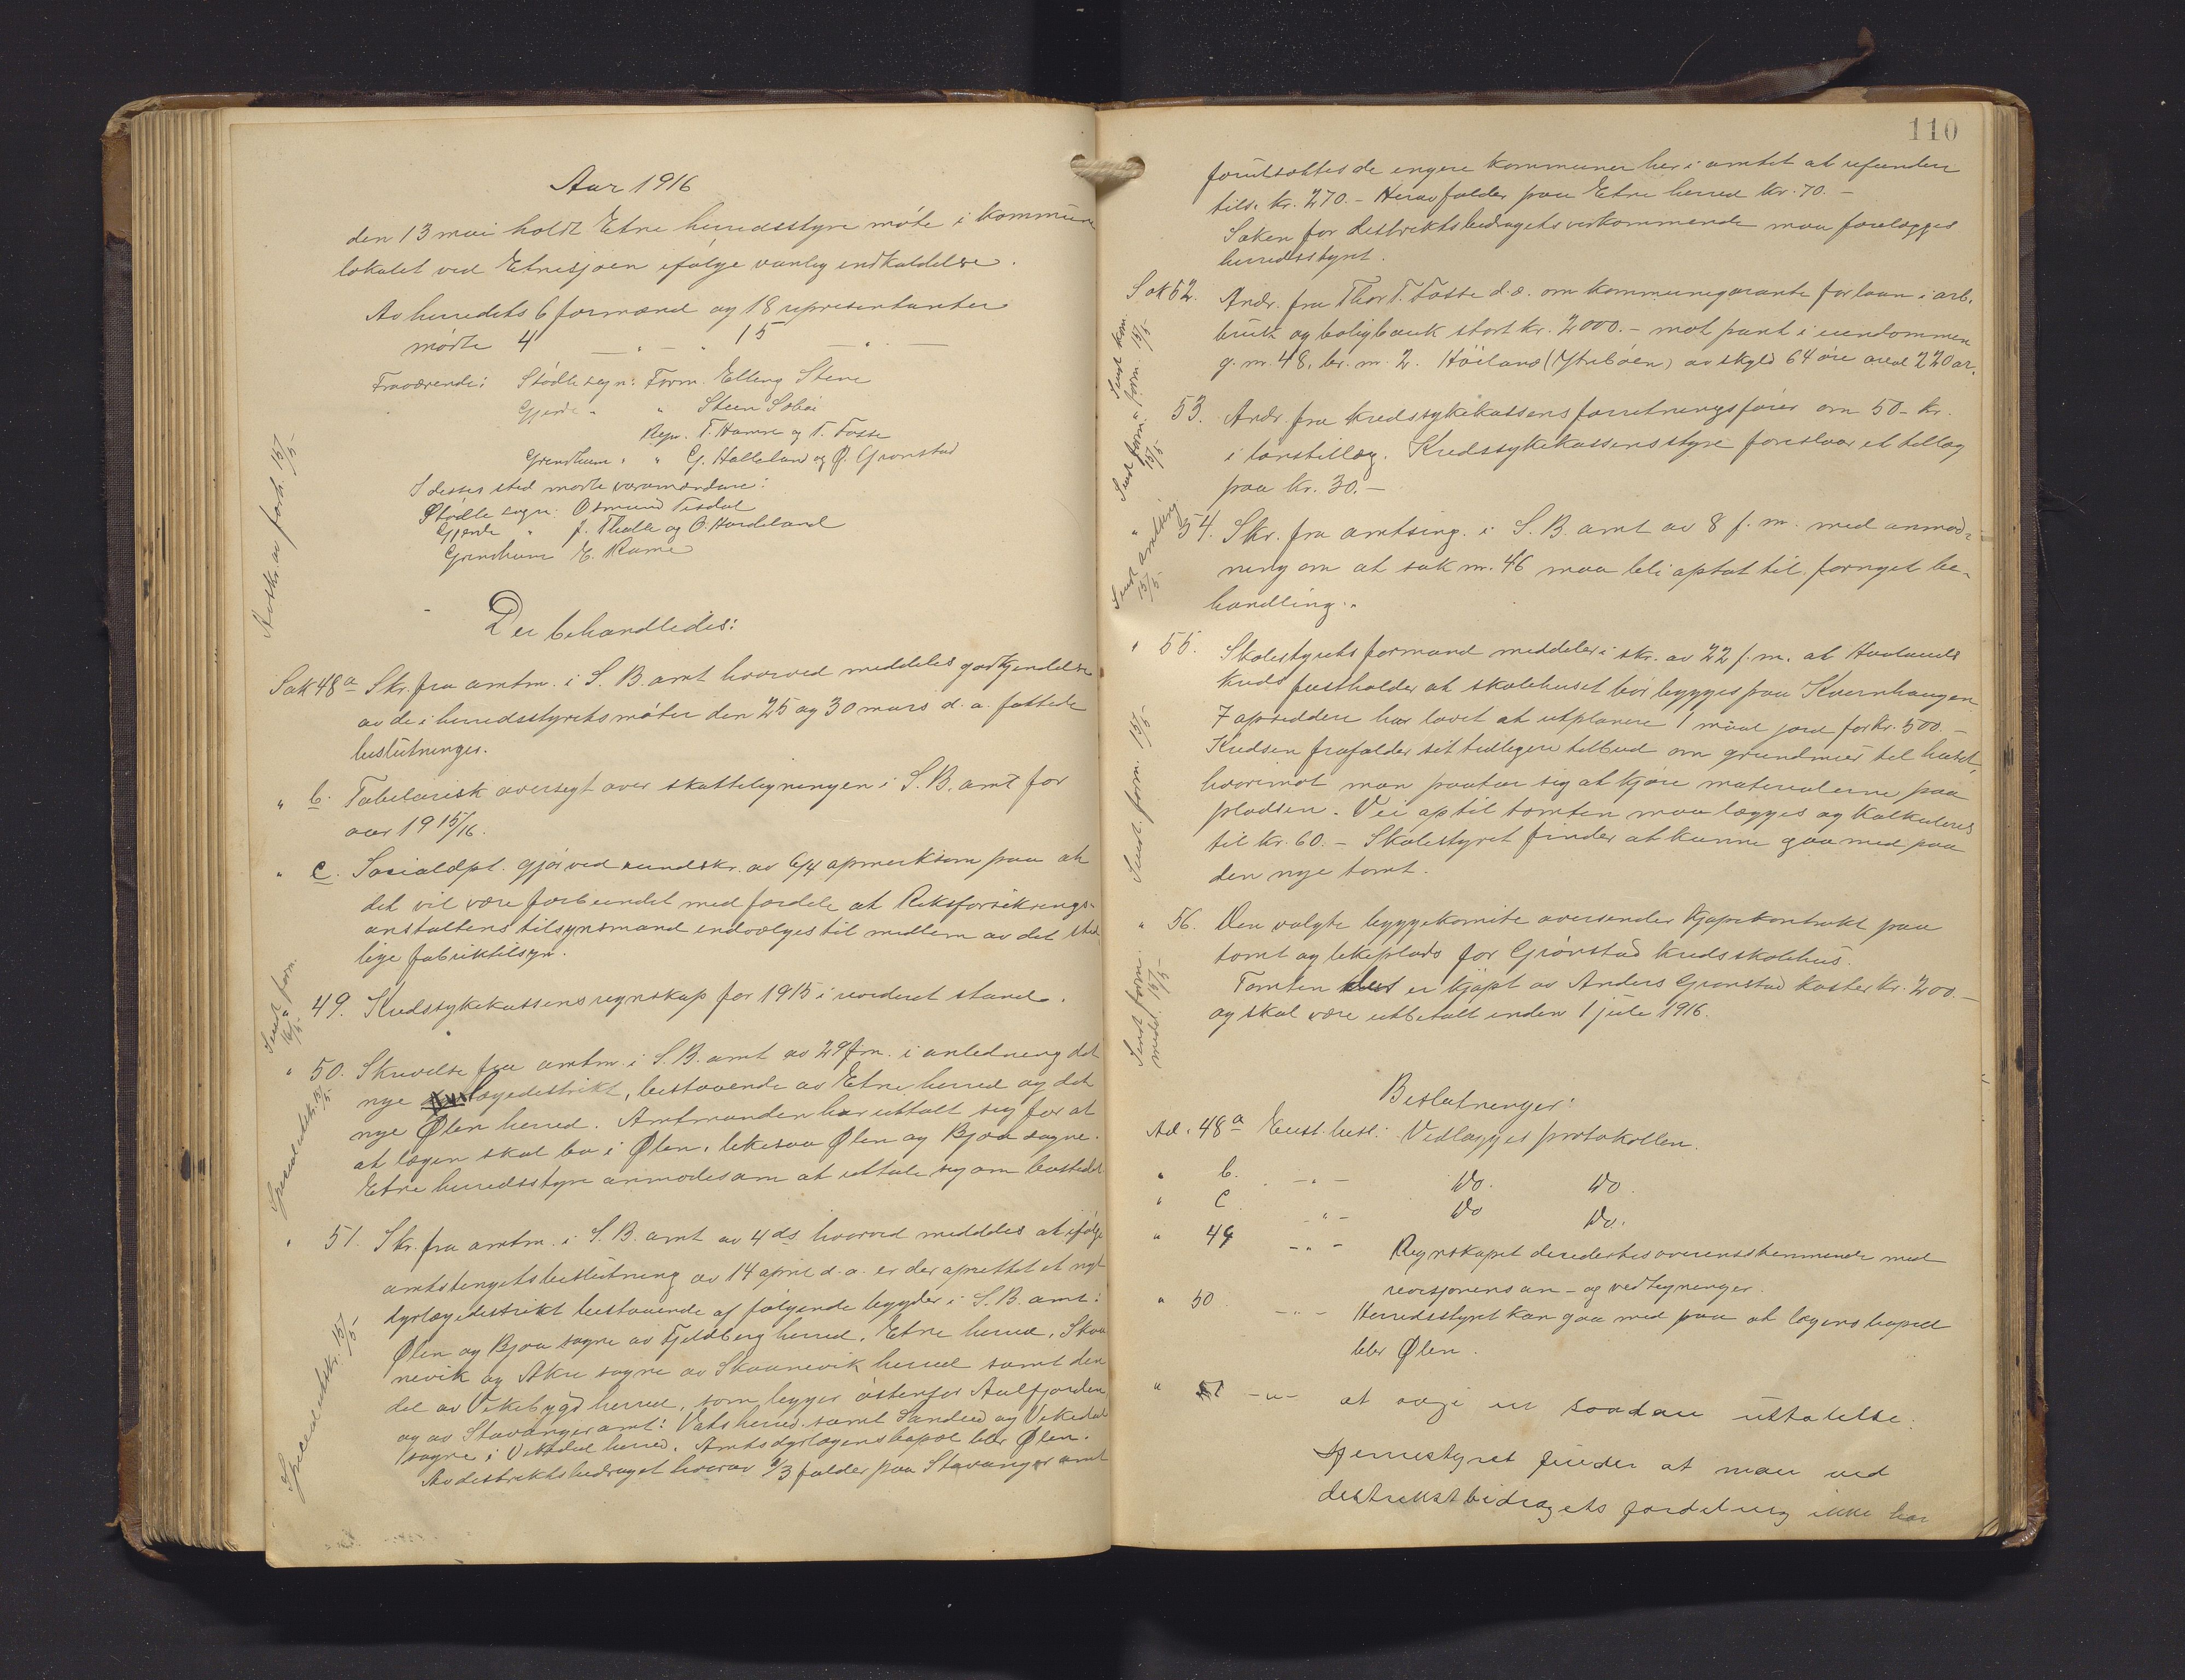 Aar 1916
den 13 mai holdt Etne herredsstyre møte i kommune
lokalet ved Etnesjøen ifølge vanlig indkaldelse.
Av herredets 6 formænd og 18 representanter
møtte 4 — " — " 15 — " —
Fraværende: Stødle sogn: Form. Elling Stene
Gjerde " " Steen Sæbø
Repr. T. Hamre og T. Fosse
Grindheim " " G. Halleland og Ø. Grønstad
I disses sted møtte varamændene:
Stødle sogn: Osmund Tesdal
Gjerde " J. Tholle og O. Hardeland
Grindheim E. Rame
Der behandledes:
Avskr. av forh. 15/5
Sak 48 a Skr. fra amtm. i S. B. amt hvorved meddeles godkjendelse
av de i herredsstyrets møter den 25 og 30 mars d. a. fattede
beslutninger.
" b. Tabelarisk oversigt over skatteligningen i S. B. amt for
aar 1915/16.
" c. Socialdpt. gjør ved rundskr. av 6/4 opmerksom paa at
det vil være forbundet med fordele at Riksforsikrings-
anstaltens tilsynsmand indvælges til medlem av det sted-
lige fabriktilsyn.
Sendt form. 16/5
" 49. Kredssykekassens regnskap for 1915 i revideret stand.
" 50. Skrivelse fra amtm. i S. B. amt av 29 f.m. i anledning det
nye lægedistrikt, bestaaende av Etne herred og det
nye Ølen herred. Amtmanden har uttalt sig for at
at lægen skal bo i Ølen, likesaa Ølen og Bjoa sogne.
Etne herredsstyre anmodes om at uttale sig om bostedet
Special utskr. 15/5
" 51. Skr. fra amtm. i S. B. amt av 4 ds hvorved meddeles at ifølge
amtstingets beslutning av 14 april d. a. er der oprettet et nyt
dyrlægedistrikt bestaaende af følgende bygder i S. B. amt:
Ølen og Bjoa sogne av Fjeldberg herred, Etne herred, Skaa
nevik og Akre sogne av Skaanevik herred samt den
del av Vikebygd herred, som ligger østenfor Aalfjorden
og av Stavanger amt: Vats herred samt Sandeid og Vikedal
sogne i Vikedal herred. Amtsdyrlægens bopæl blir Ølen.
Av distriktsbidraget hvorav 1/3 falder paa Stavanger amt
Special utskr. 15/5
110
forutsættes de engere kommuner her i amtet at refundere
tils. kr. 270.- Herav falder paa Etne herred kr. 70.-
Saken for distriktsbidragets vedkommende maa forelægges
herredsstyret.
Sak 52. Andr. fra Thor T. Fosse d.æ. om kommunegaranti for laan i arb.
bruk og boligbank stort kr. 2000.- mot pant i eiendommen
g. nr. 48, br. nr. 2. Høiland (Ytrebøen) av skyld 64 øre areal 220 ar.
53. Andr. fra kredssykekassens forretningsfører om 50.- kr.
i lønstillæg. Kredssykekassens styre foreslaar et tillæg
paa kr. 30.-
Sendt form. 15/5
" 54. Skr. fra amtsing. i S. B. amt av 8 f. m. med anmod-
ning om at sak nr. 46 maa bli optat til fornyet be-
handling.
" 55. Skolestyrets formand meddeler i skr. av 22 f. m. at Haavlands
kreds fastholder at skolehuset bør bygges paa Kvernhaugen
7 opsiddere har lovet at utplanere 1 maal jord for kr. 500.-
Kredsen frafalder sit tidligere tilbud om grundmur til huset,
hvorimot man paatar sig at kjøre materialerne paa
pladsen. Vei op til tomten maa lægges og kalkuleres
til kr. 60.- Skolestyret finder at kunne gaa med paa
den nye tomt.
Sendt form. 15/5
" 56. Den valgte byggekomite oversender kjøpekontrakt paa
tomt og lekeplads for Grønstad kreds skolehus.
Tomten er kjøpt av Anders Grønstad koster kr. 200.-
og skal være utbetalt inden 1 juli 1916.
Beslutninger:
Ad. 48 a Enst. besl: Vedlægges protokollen.
" b. — " — Do. Do.
" c — " — Do Do.
" 49 — " — Regnskapet desidertes overensstemmende med
revisjonens an- og vedtegninger.
" 50 — " — Herredsstyret kan gaa med paa at lægens bopæl
blir Ølen.
" 51 — " — at avgi en saadan uttalelse:
Herredstyret finder at man ved
distriktsbidragets fordeling ikke har